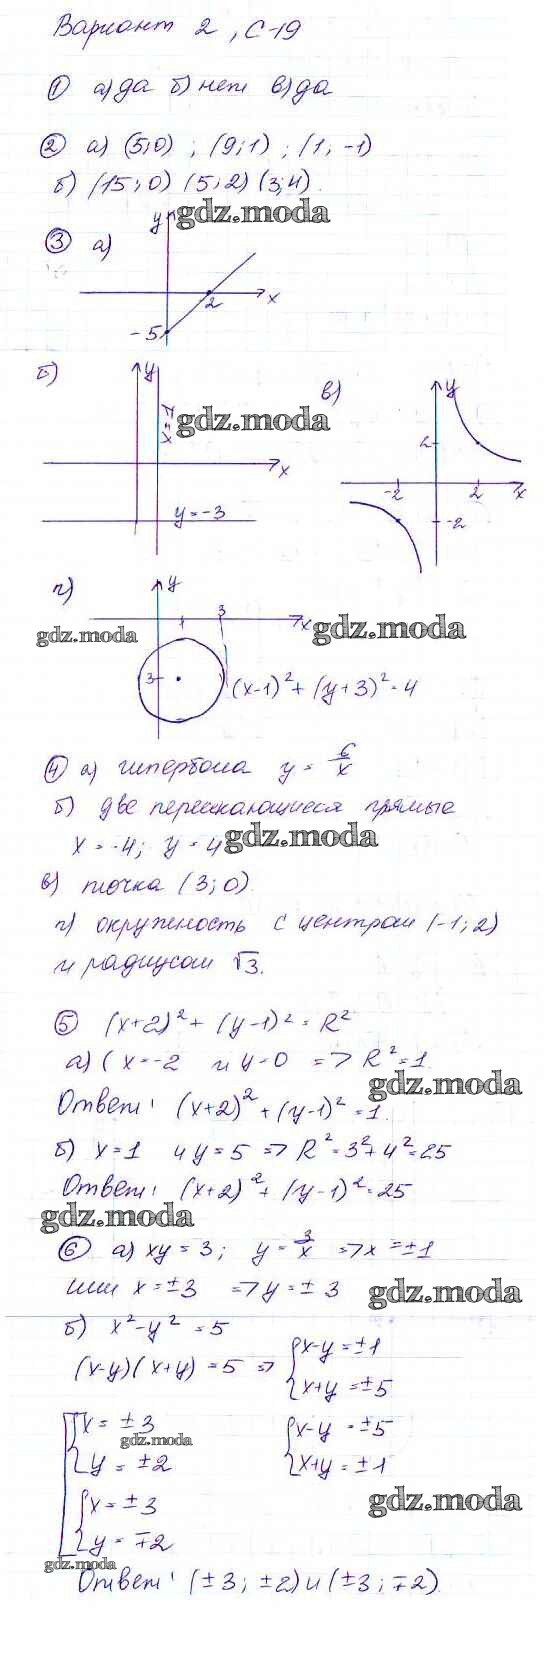 Вариант 2, С-19
① а) да б) нет в) да
② а) (5;0) ; (9;1) ; (1, -1)
б) (15;0) (5;2) (3;4).
gdz.moda
③ а)
y
x
2
-5
б)
y
x
x=1
gdz.moda
y=-3
в)
y
x
2
-2
2
-2
г)
y
1
3
x
gdz.moda
gdz.moda
3
(x-1)² + (y+3)² = 4
④ а) гипербола y = 6/x
б) две пересекающиеся прямые
x = -4; y = 4
gdz.moda
в) точка (3;0)
г) окружность с центром (-1;2)
и радиусом √3.
⑤ (x+2)² + (y-1)² = R²
а) (x=-2 и y=0 => R²=1.
gdz.moda
Ответ: (x+2)² + (y-1)² = 1.
б) x=1 и y=5 => R²=3²+4²=25
Ответ: (x+2)² + (y-1)² = 25
gdz.moda
⑥ а) xy = 3; y = 3/x => x = ±1
или x = ±3 => y = ± 3
gdz.moda
б) x² - y² = 5
(x-y)(x+y) = 5 => { x-y = ±1
x+y = ±5
x = ±3
gdz.moda
y = ±2
x-y = ±5
x+y = ±1
x = ±3
y = ∓2
gdz.moda
gdz.moda
Ответ: (±3; ±2) и (±3; ∓2).